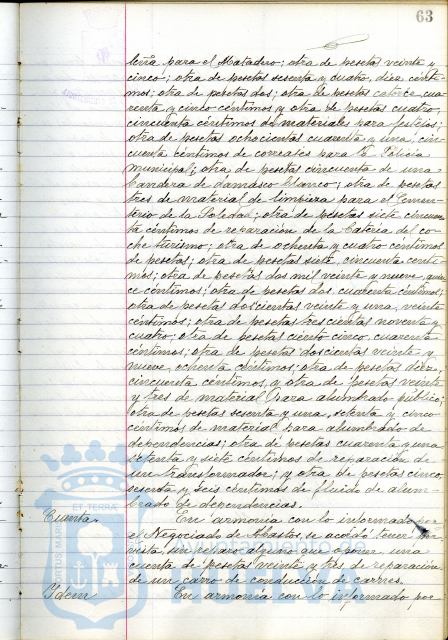 63
leña para el Matadero; otra de pesetas veinte y
cinco; otra de pesetas sesenta y cuatro, diez cénti-
mos; otra de pesetas dos; otra de pesetas catorce cua-
renta y cinco céntimos y otra de pesetas cuatro,
cincuenta céntimos de materiales para
otra de pesetas ochocientas cuarenta y una, cin-
cuenta céntimos de correajes para la Policía
municipal; otra de pesetas cincuenta de una
bandera de damasco blanco; otra de pesetas
tres de material de limpieza para el Cemen-
terio de la Soledad; otra de pesetas siete cincuen-
ta céntimos de reparación de la batería del co-
che turismo; otra de ochenta y cuatro céntimos
de pesetas; otra de pesetas siete, cincuenta cénti-
mos; otra de pesetas dos mil veinte y nueve, quin-
ce céntimos; otra de pesetas dos cuarenta céntimos;
otra de pesetas doscientas veinte y una, veinte
céntimos; otra de pesetas trescientas noventa y
cuatro; otra de pesetas ciento cinco, cuarenta
céntimos; otra de pesetas doscientas veinte y
nueve, ochenta céntimos; otra de pesetas diez,
cincuenta céntimos, y otra de pesetas veinte
y tres de material para alumbrado público;
otra de pesetas sesenta y una, setenta y cinco
céntimos de material para alumbrado de
dependencias; otra de pesetas cuarenta y una
setenta y siete céntimos de reparación de
un transformador; y otra de pesetas cinco,
sesenta y seis céntimos de fluido de alum-
brado de dependencias.
Cuenta. En armonía con lo informado por
el Negociado de Abastos, se acordó tener por
vista, sin reparo alguno que oponer una
cuenta de pesetas veinte y tres de reparación
de un carro de conducción de carnes.
Idem En armonía con lo informado por